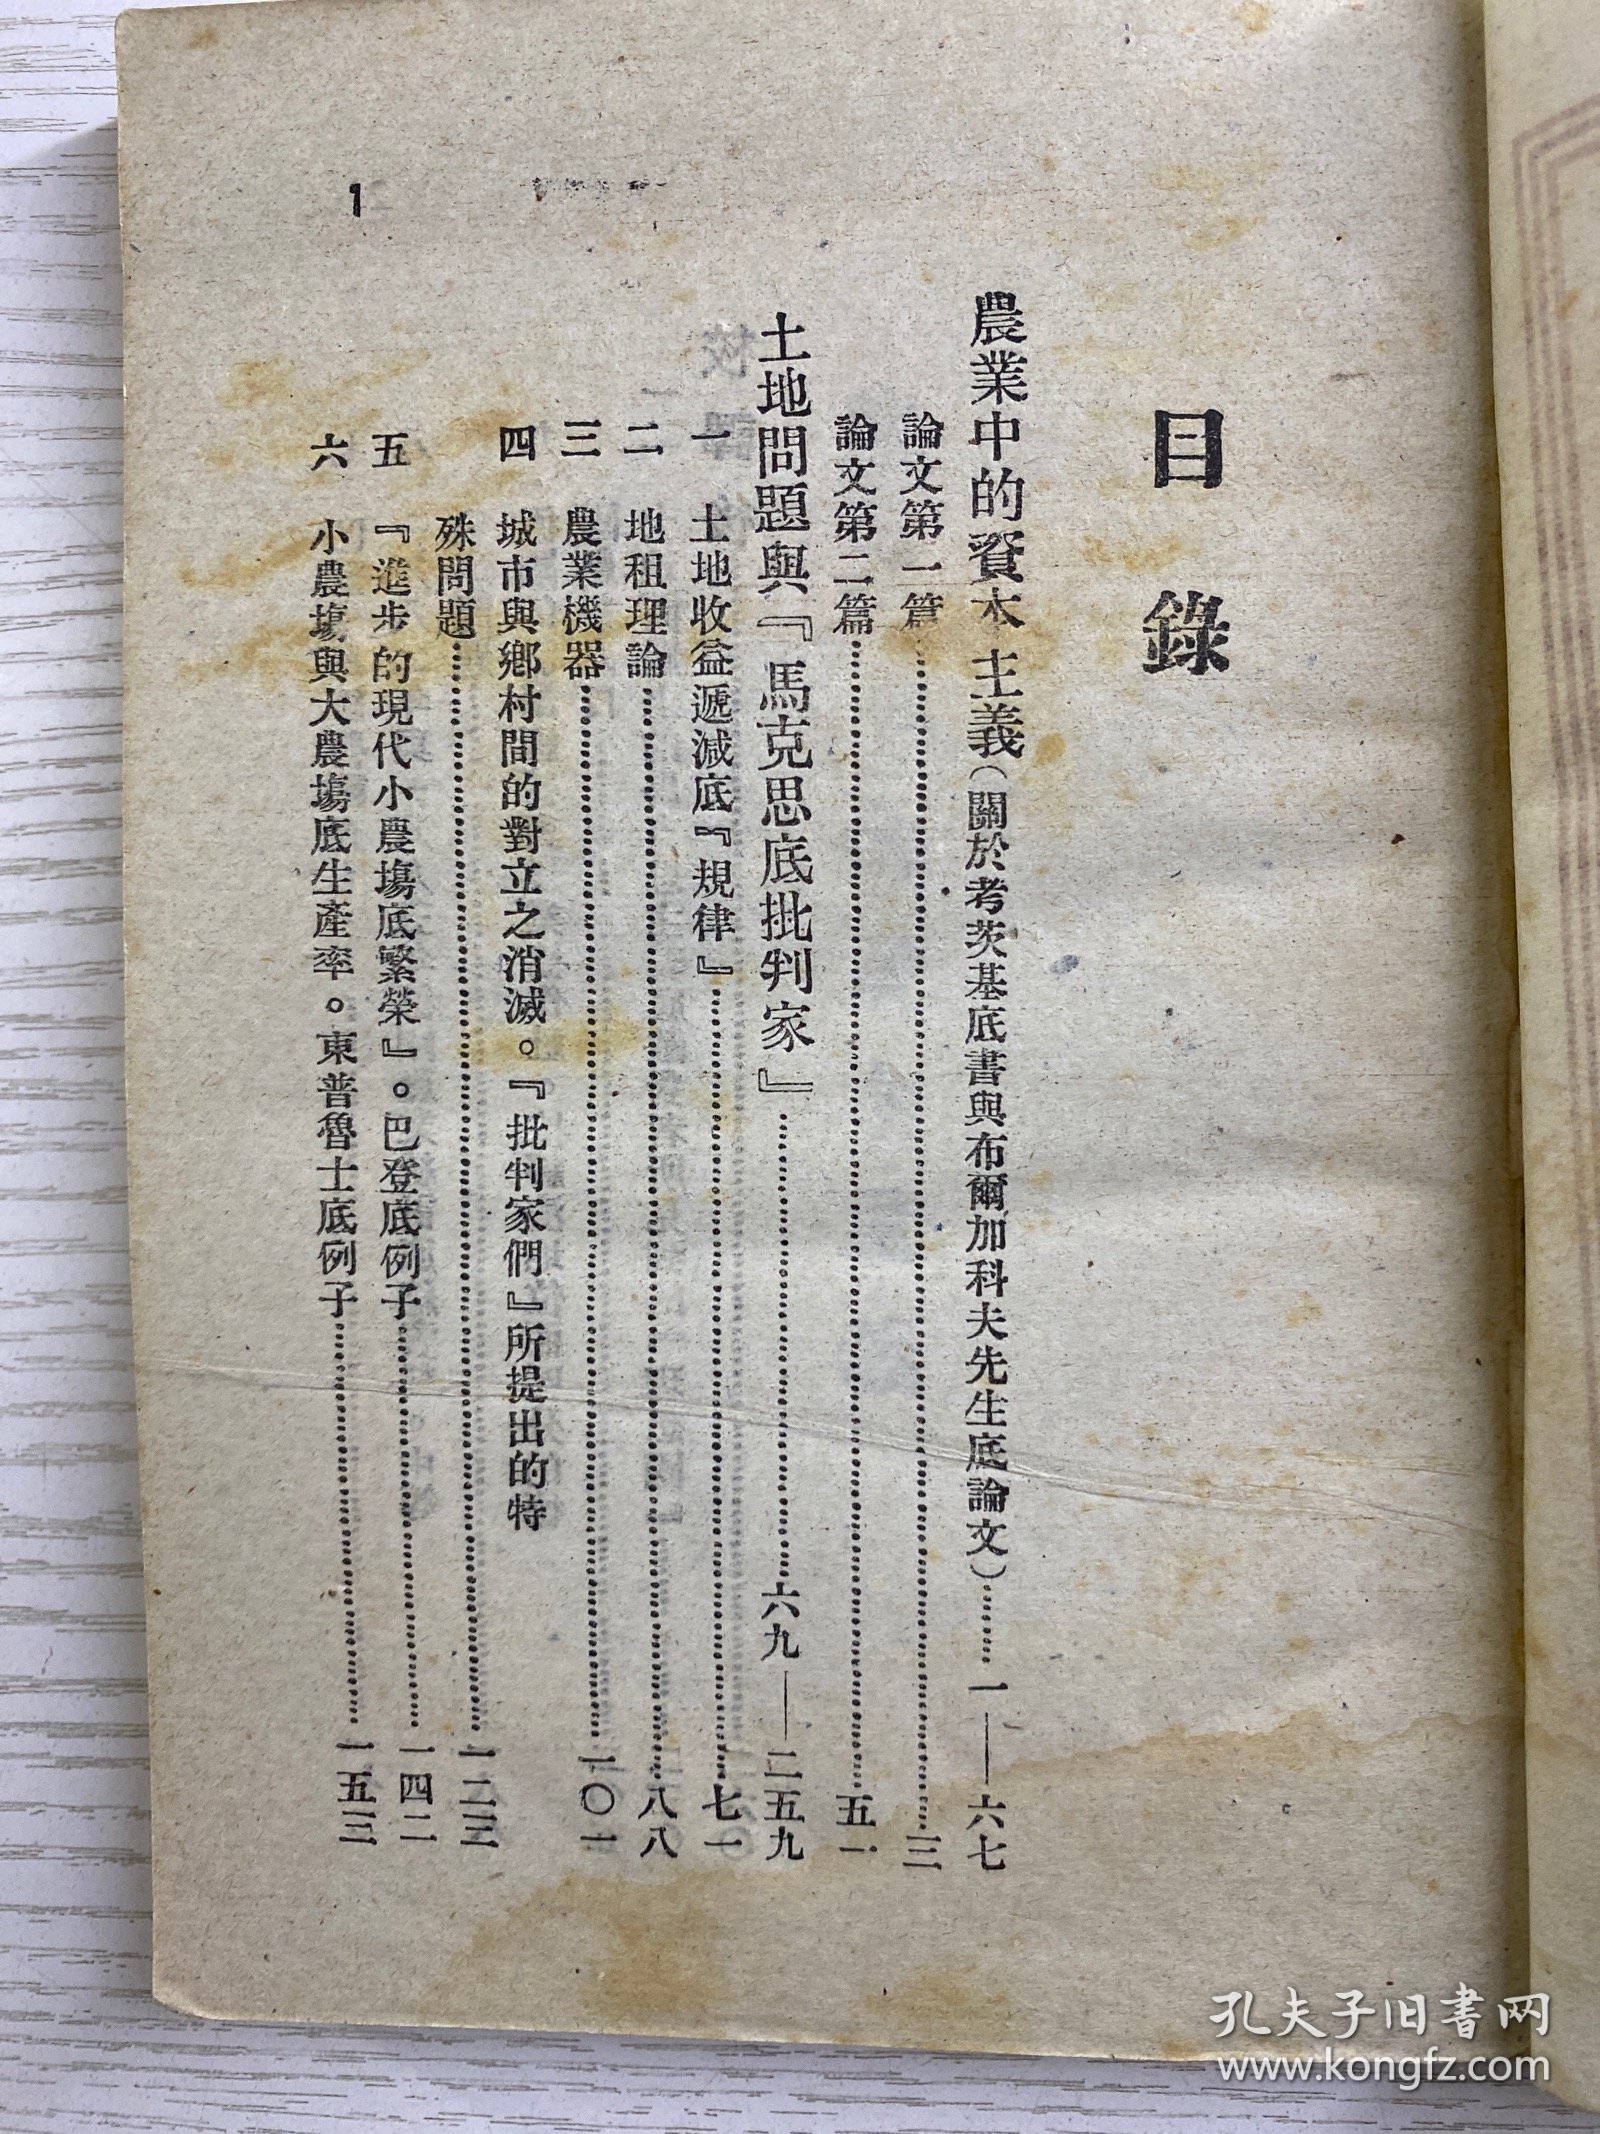 目錄
農業中的資本主義（關於考茨基底書與布爾加科夫先生底論文）……一——六七
論文第一篇……三
論文第二篇……五一
土地問題與『馬克思底批判家』……六九——二五九
一　土地收益遞減底『規律』……七一
二　地租理論……八八
三　農業機器……一〇一
四　城市與鄉村間的對立之消滅。『批判家們』所提出的特
殊問題……一二三
五　『進步的現代小農場底繁榮』。巴登底例子……一四二
六　小農場與大農場底生產率。東普魯士底例子……一五三
1
孔夫子旧书网
www.kongfz.com